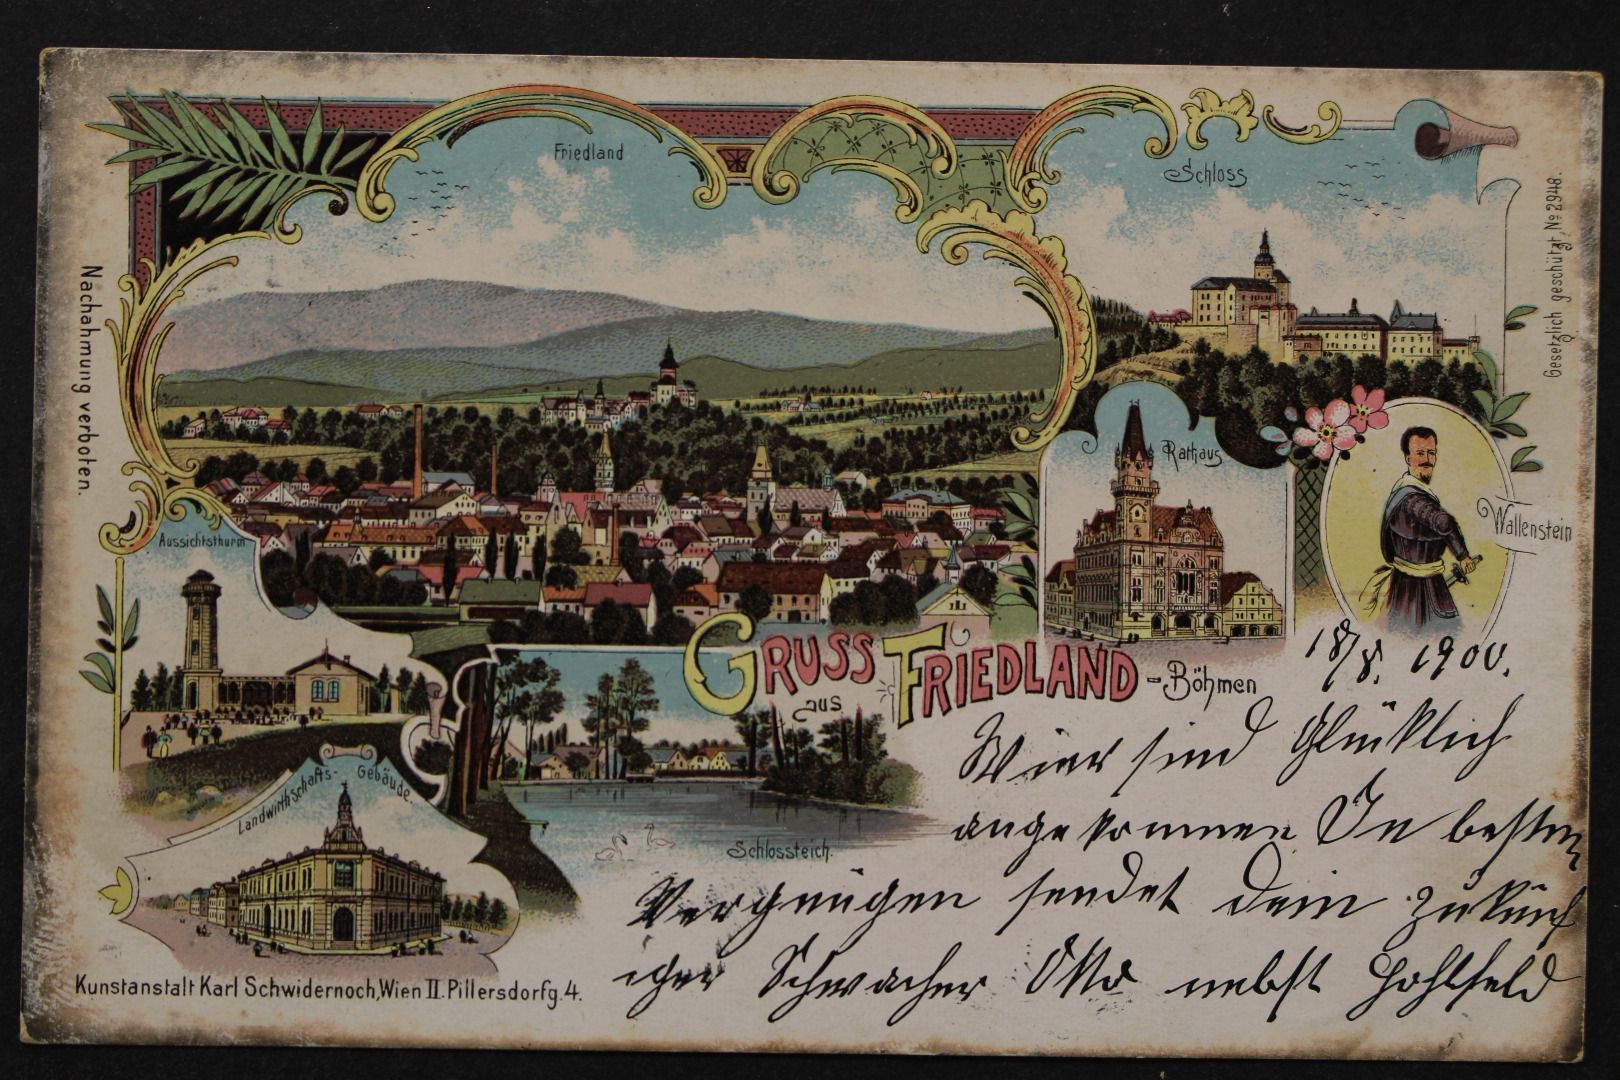 Friedland
Schloss
Gesetzlich geschützt, No 2948.
Nachahmung verboten.
Rathaus
Wallenstein
Aussichtsthurm
Gruss
aus
Friedland
-Böhmen
18/8. 1900.
Wier sind Glücklich
angekommen In besten
Vergnügen sendet dein Zukünf
iger Schwacher Otto nebst Hohlfeld
Landwirthschafts-Gebäude.
Schlossteich.
Kunstanstalt Karl Schwidernoch, Wien II. Pillersdorfg. 4.